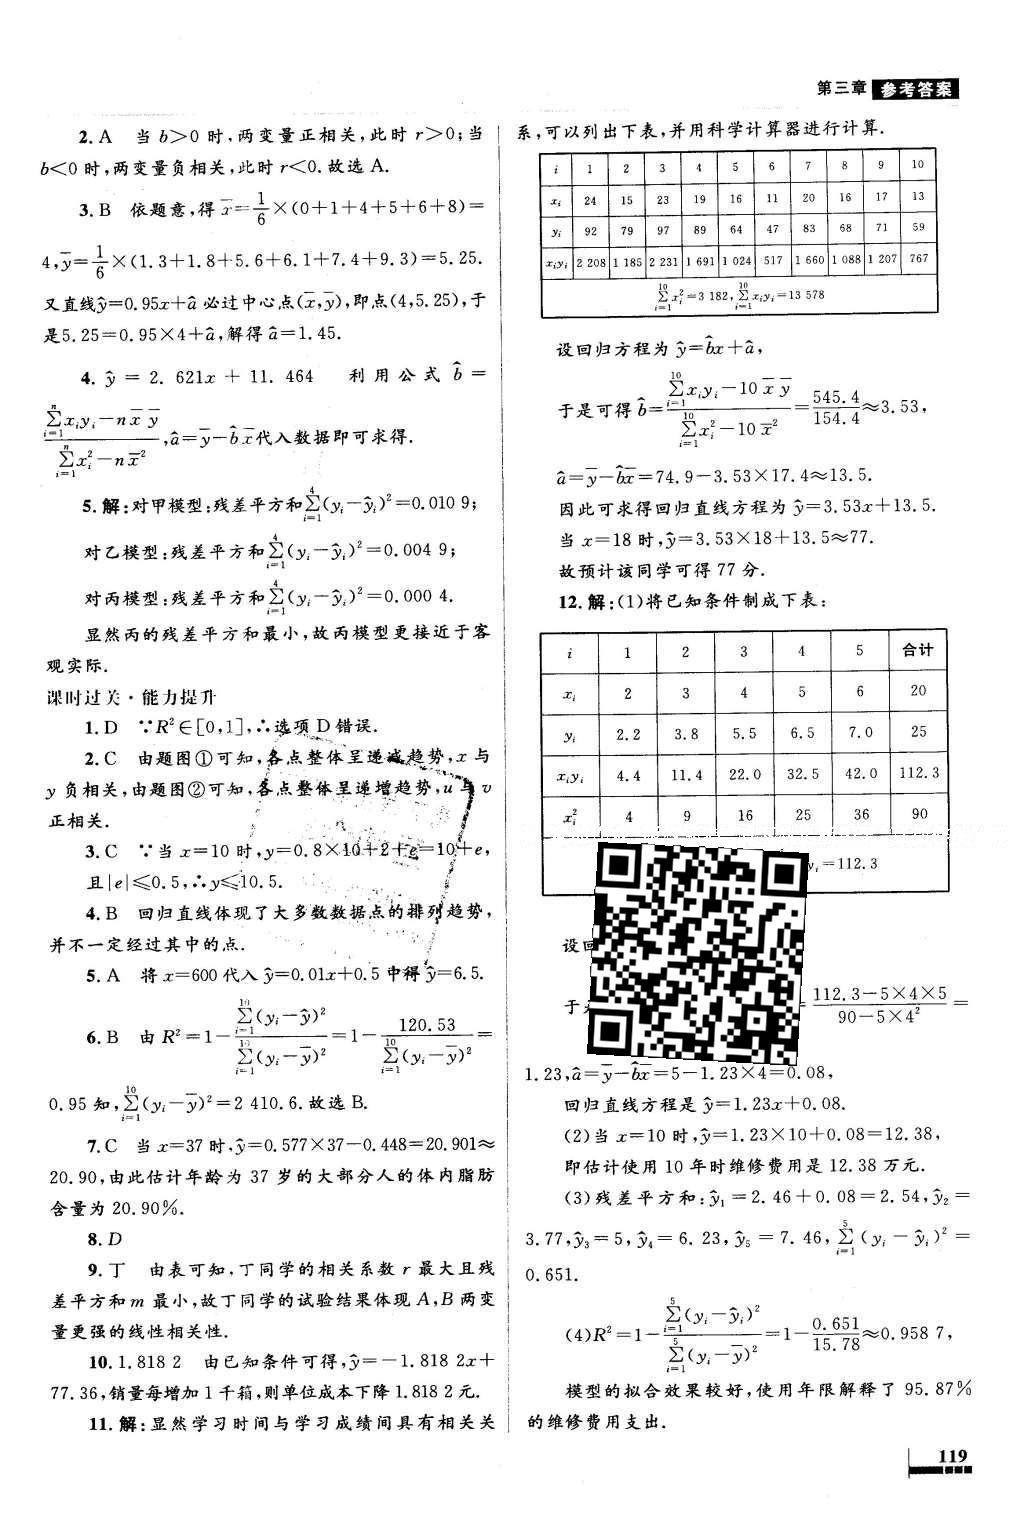 第三章 参考答案
2. A 当 b>0 时,两变量正相关,此时 r>0;当
b<0 时,两变量负相关,此时 r<0. 故选 A.
3. B 依题意,得 x̄=1/6×(0+1+4+5+6+8)=
4,ȳ=1/6×(1.3+1.8+5.6+6.1+7.4+9.3)=5.25.
又直线ŷ=0.95x+â 必过中心点(x̄,ȳ),即点(4,5.25),于
是5.25=0.95×4+â,解得 â=1.45.
4. ŷ = 2. 621x + 11. 464 利用公式 b̂ =
(∑_{i=1}^{n} x_i y_i − n x̄ ȳ)/(∑_{i=1}^{n} x_i² − n x̄²),â=ȳ−b̂ x̄代入数据即可求得.
5. 解:对甲模型:残差平方和∑_{i=1}^{4}(y_i−ŷ_i)²=0.010 9;
对乙模型:残差平方和∑_{i=1}^{4}(y_i−ŷ_i)²=0.004 9;
对丙模型:残差平方和∑_{i=1}^{4}(y_i−ŷ_i)²=0.000 4.
显然丙的残差平方和最小,故丙模型更接近于客
观实际.
课时过关·能力提升
1. D ∵R²∈[0,1],∴选项 D 错误.
2. C 由题图①可知,各点整体呈递减趋势,x 与
y 负相关,由题图②可知,各点整体呈递增趋势,u 与 v
正相关.
3. C ∵当 x=10 时,y=0.8×10+2+e=10+e,
且|e|⩽0.5,∴y⩽10.5.
4. B 回归直线体现了大多数数据点的排列趋势,
并不一定经过其中的点.
5. A 将 x=600 代入 ŷ=0.01x+0.5 中得 ŷ=6.5.
6. B 由 R²=1−∑_{i=1}^{10}(y_i−ŷ)²/∑_{i=1}^{10}(y_i−ȳ)²=1−120.53/∑_{i=1}^{10}(y_i−ȳ)²=
0.95 知,∑_{i=1}^{10}(y_i−ȳ)²=2 410.6. 故选 B.
7. C 当 x=37 时,ŷ=0.577×37−0.448=20.901≈
20.90,由此估计年龄为 37 岁的大部分人的体内脂肪
含量为 20.90%.
8. D
9. 丁 由表可知,丁同学的相关系数 r 最大且残
差平方和 m 最小,故丁同学的试验结果体现 A,B 两变
量更强的线性相关性.
10. 1.818 2 由已知条件可得,ŷ=−1.818 2x+
77.36,销量每增加 1 千箱,则单位成本下降 1.818 2 元.
11. 解:显然学习时间与学习成绩间具有相关关
系,可以列出下表,并用科学计算器进行计算.
i 1 2 3 4 5 6 7 8 9 10
x_i 24 15 23 19 16 11 20 16 17 13
y_i 92 79 97 89 64 47 83 68 71 59
x_i y_i 2 208 1 185 2 231 1 691 1 024 517 1 660 1 088 1 207 767
∑_{i=1}^{10} x_i²=3 182,∑_{i=1}^{10} x_i y_i=13 578
设回归方程为 ŷ=b̂x+â,
于是可得 b̂=(∑_{i=1}^{10} x_i y_i−10 x̄ ȳ)/(∑_{i=1}^{10} x_i²−10 x̄²)=545.4/154.4≈3.53,
â=ȳ−b̂x̄=74.9−3.53×17.4≈13.5.
因此可求得回归直线方程为 ŷ=3.53x+13.5.
当 x=18 时,ŷ=3.53×18+13.5≈77.
故预计该同学可得 77 分.
12. 解:(1)将已知条件制成下表:
i 1 2 3 4 5 合计
x_i 2 3 4 5 6 20
y_i 2.2 3.8 5.5 6.5 7.0 25
x_i y_i 4.4 11.4 22.0 32.5 42.0 112.3
x_i² 4 9 16 25 36 90
y_i=112.3
设回
于是 =(112.3−5×4×5)/(90−5×4²)=
1.23,â=ȳ−b̂x̄=5−1.23×4=0.08,
回归直线方程是 ŷ=1.23x+0.08.
(2)当 x=10 时,ŷ=1.23×10+0.08=12.38,
即估计使用 10 年时维修费用是 12.38 万元.
(3)残差平方和:ŷ₁=2.46+0.08=2.54,ŷ₂=
3.77,ŷ₃=5,ŷ₄=6.23,ŷ₅=7.46,∑_{i=1}^{5}(y_i−ŷ_i)²=
0.651.
(4)R²=1−∑_{i=1}^{5}(y_i−ŷ_i)²/∑_{i=1}^{5}(y_i−ȳ)²=1−0.651/15.78≈0.958 7,
模型的拟合效果较好,使用年限解释了 95.87%
的维修费用支出.
119